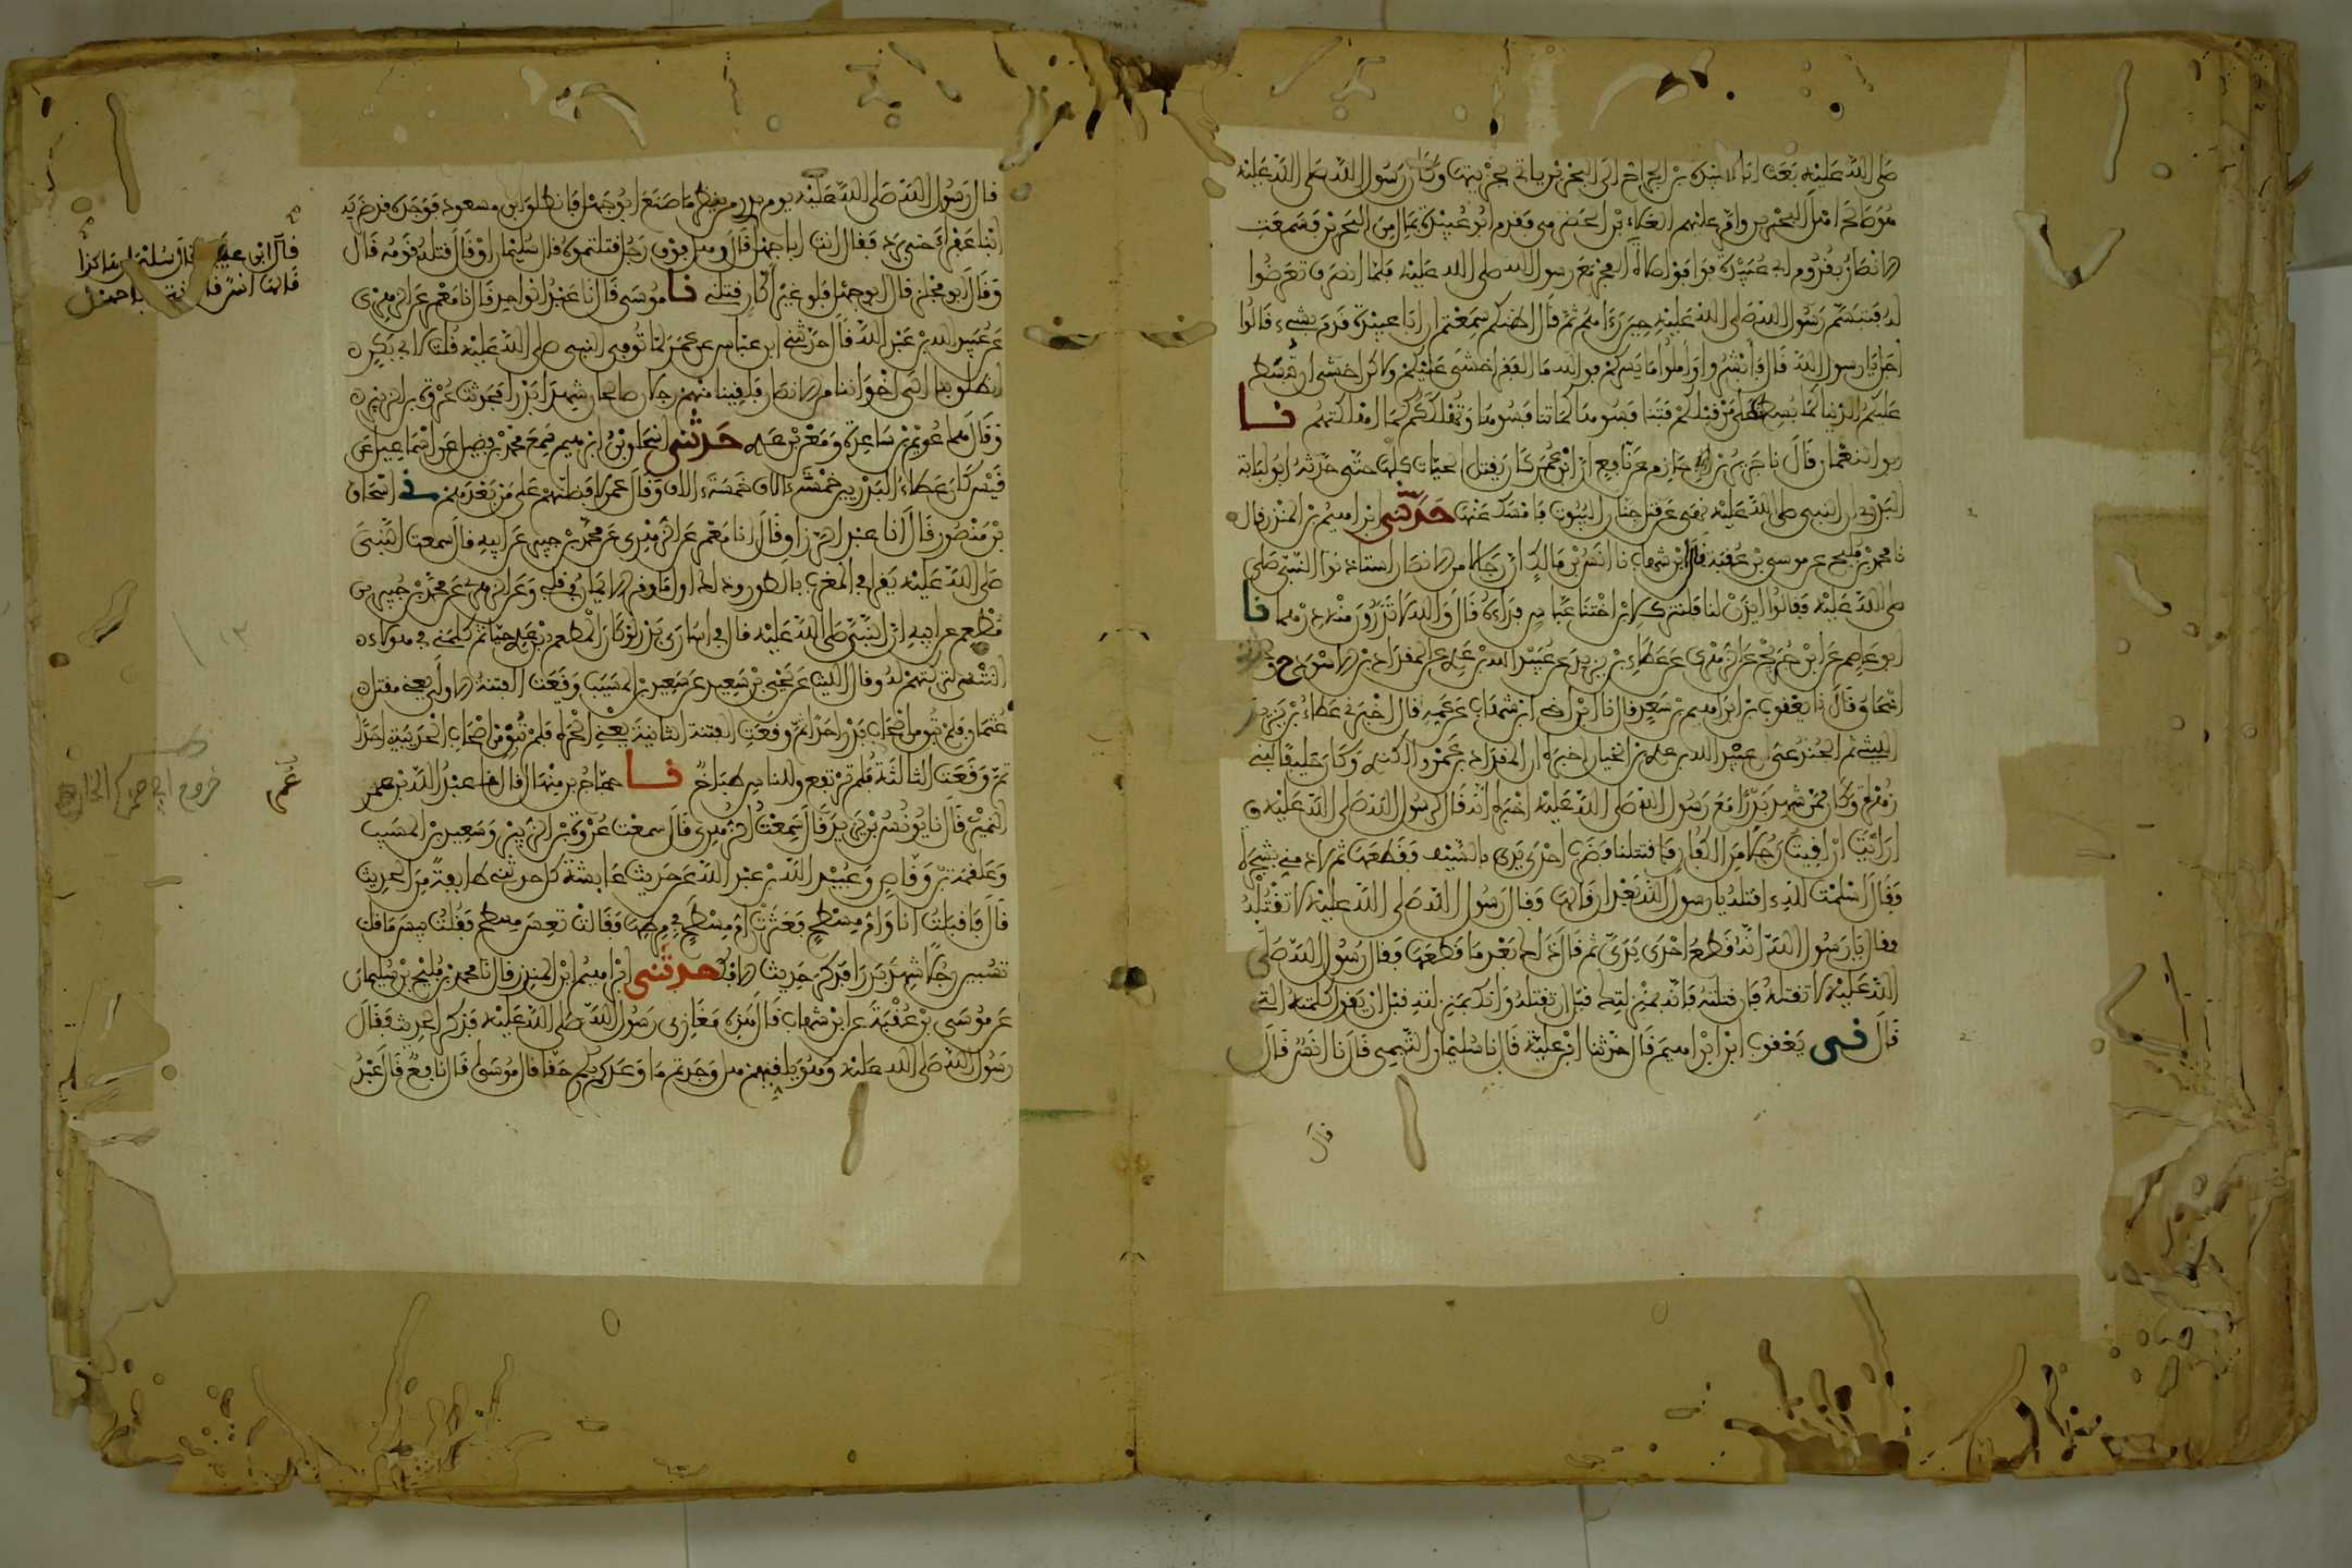 صلى الله عليه بعث ابا عبيدة بن الجراح الى البحرين ياتي بجزيتها وكان رسول الله صلى الله عليه
هو صالح اهل البحرين وامر عليهم العلاء بن الحضرمي فقدم ابو عبيدة بمال من البحرين فسمعت
الانصار بقدوم ابي عبيدة فوافوا صلاة الفجر مع رسول الله صلى الله عليه فلما انصرف تعرضوا
له فتبسم رسول الله صلى الله عليه حين رءاهم ثم قال اظنكم سمعتم ان ابا عبيدة قدم بشيء قالوا
اجل يا رسول الله قال فابشروا واملوا ما يسركم فوالله ما الفقر اخشى عليكم ولاكن اخشى ان تبسط
عليكم الدنيا كما بسطت على من قبلكم فتنافسوها كما تنافسوها وتهلككم كما اهلكتهم نا
ابو النعمان قال نا جرير بن حازم عن نافع ان ابن عمر كان يقتل الحيات كلها حتى حدثه ابو لبابة
البدري ان النبي صلى الله عليه نهى عن قتل جنان البيوت فامسك عنها حدثني ابراهيم بن المنذر قال
نا محمد بن فليح عن موسى بن عقبة قال ابن شهاب نا انس بن مالك ان رجالا من الانصار استاذنوا النبي صلى
صلى الله عليه فقالوا ايذن لنا فلنترك لابن اختنا عباس فداءه قال والله لا تذرون منه درهما نا
ابو عاصم عن ابن جريج عن الزهري عن عطاء بن يزيد عن عبيد الله بن عدي عن المقداد بن الاسود ح
اسحاق قال نا يعقوب بن ابراهيم بن سعد قال نا ابن اخي ابن شهاب عن عمه قال اخبرني عطاء بن يزيد
الليثي ثم الجندعي ان عبيد الله بن عدي بن الخيار اخبره ان المقداد بن عمرو الكندي وكان حليفا لبني
زهرة وكان ممن شهد بدرا مع رسول الله صلى الله عليه اخبره انه قال لرسول الله صلى الله عليه
ارايت ان لقيت رجلا من الكفار فاقتتلنا فضرب احدى يدي بالسيف فقطعها ثم لاذ مني بشجرة
فقال اسلمت لله ءاقتله يا رسول الله بعد ان قالها فقال رسول الله صلى الله عليه لا تقتله
فقال يا رسول الله انه قطع احدى يدي ثم قال ذلك بعد ما قطعها فقال رسول الله صلى
الله عليه لا تقتله فان قتلته فانه بمنزلتك قبل ان تقتله وانك بمنزلته قبل ان يقول كلمته التي
قال ني يعقوب ابن ابراهيم قال حدثنا ابن علية قال نا سليمان التيمي قال نا انس قال
قال
قال رسول الله صلى الله عليه يوم بدر من ينظر ما صنع ابو جهل فانطلق ابن مسعود فوجده قد ضربه
ابنا عفراء حتى برد فقال انت ابا جهل قال وهل فوق رجل قتلتموه قال سليمان او قال قتله قومه قال
وقال ابو مجلز قال ابو جهل فلو غير اكار قتلني نا موسى قال نا عبد الواحد قال نا معمر عن الزهري
عن عبيد الله بن عبد الله قال حدثني ابن عباس عن عمر لما توفي النبي صلى الله عليه قلت لابي بكر
انطلق بنا الى اخواننا من الانصار فلقينا منهم رجلان صالحان شهدا بدرا فحدثت عروة بن الزبير
فقال هما عويم بن ساعدة ومعن بن عدي حدثني اسحاق بن ابراهيم سمع محمد بن فضيل عن اسماعيل عن
قيس كان عطاء البدريين خمسة ءالاف خمسة ءالاف وقال عمر لافضلنهم على من بعدهم ني اسحاق
بن منصور قال انا عبد الرزاق قال انا معمر عن الزهري عن محمد بن جبير عن ابيه قال سمعت النبي
صلى الله عليه يقرا في المغرب بالطور وذلك اول ما وقر الايمان في قلبي وعن الزهري عن محمد بن جبير بن
مطعم عن ابيه ان النبي صلى الله عليه قال في اسارى بدر لو كان المطعم بن عدي حيا ثم كلمني في هؤلاء
النتنى لتركتهم له وقال الليث عن يحيى بن سعيد عن سعيد بن المسيب وقعت الفتنة الاولى يعني مقتل
عثمان فلم تبق من اصحاب بدر احدا ثم وقعت الفتنة الثانية يعني الحرة فلم تبق من اصحاب الحديبية احدا
ثم وقعت الثالثة فلم ترتفع وللناس طباخ نا حجاج بن منهال قال نا عبد الله بن عمر
النميري قال نا يونس بن يزيد قال سمعت الزهري قال سمعت عروة بن الزبير وسعيد بن المسيب
وعلقمة بن وقاص وعبيد الله بن عبد الله عن حديث عايشة كل حدثني طايفة من الحديث
قالت فاقبلت انا وام مسطح فعثرت ام مسطح في مرطها فقالت تعس مسطح فقلت بيس ما قلت
تسبين رجلا شهد بدرا فذكر حديث الافك حدثني ابراهيم ابن المنذر قال نا محمد بن فليح بن سليمان
عن موسى بن عقبة عن ابن شهاب قال هذه مغازي رسول الله صلى الله عليه فذكر الحديث فقال
رسول الله صلى الله عليه وهو يلقيهم هل وجدتم ما وعدكم ربكم حقا قال موسى قال نافع قال عبد
قال ابن علية قال سليمان هاكذا
قالها انس قال انت ابا جهل